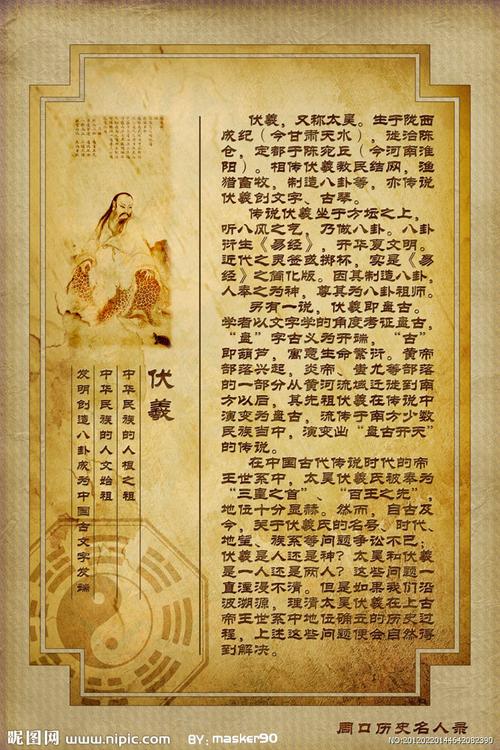 伏羲，又称太昊。生于陇西
成纪（今甘肃天水），徙治陈
仓，定都于陈宛丘（今河南淮
阳）。相传伏羲教民结网，渔
猎畜牧，制造八卦等，亦传说
伏羲创文字、古琴。
传说伏羲坐于方坛之上，
听八风之气，乃做八卦。八卦
衍生《易经》，开华夏文明。
近代之灵签或掷杯，实是《易
经》之简化版。因其制造八卦，
人奉之为神，尊其为八卦祖师。
另有一说，伏羲即盘古。
学者以文字学的角度考证盘古，
“盘”字古义为开端，“古”
即葫芦，寓意生命繁衍。黄帝
部落兴起，炎帝、蚩尤等部落
的一部分从黄河流域迁徙到南
方以后，其先祖伏羲在传说中
演变为盘古，流传于南方少数
民族当中，演变出“盘古开天”
的传说。
在中国古代传说时代的帝
王世系中，太昊伏羲氏被奉为
“三皇之首”、“百王之先”，
地位十分显赫。然而，自古及
今，关于伏羲氏的名号、时代、
地望、族系等问题争讼不已；
伏羲是人还是神？太昊和伏羲
是一人还是两人？这些问题一
直湮漫不清。但是如果我们沿
波溯源，理清太昊伏羲在上古
帝王世系中地位确立的历史过
程，上述这些问题便会自然得
到解决。
伏羲
中华民族的人根之祖
中华民族的人文始祖
发明创造八卦成为中国古文字发端
周口历史名人录
昵图网 www.nipic.com BY: masker90
NO:20120220144642082390